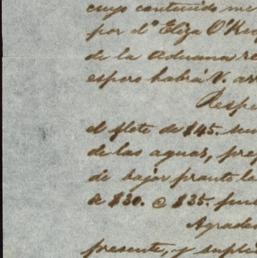 cuyo contenido me
por d.ª Eliza O'Ke
de la Aduana re
espero habrá V. ar
Respe
el flete de $45.
de las aguas, pre
de bajar pronto la
a $30. @ $35.
Agrade
presente, y suplic